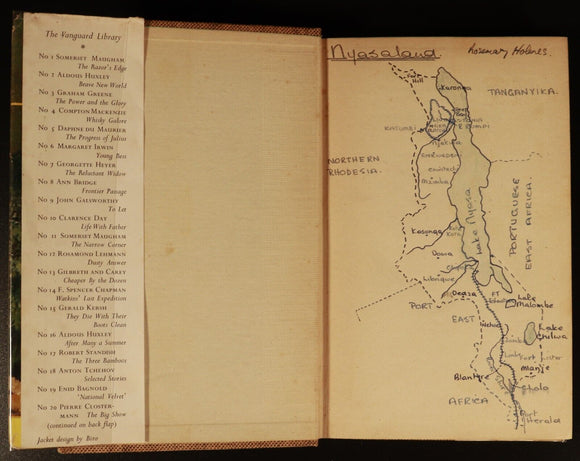 The Vanguard Library
No 1 SOMERSET MAUGHAM
The Razor's Edge
No 2 ALDOUS HUXLEY
Brave New World
No 3 GRAHAM GREENE
The Power and the Glory
No 4 COMPTON MACKENZIE
Whisky Galore
No 5 DAPHNE DU MAURIER
The Progress of Julius
No 6 MARGARET IRWIN
Young Bess
No 7 GEORGETTE HEYER
The Reluctant Widow
No 8 ANN BRIDGE
Frontier Passage
No 9 JOHN GALSWORTHY
To Let
No 10 CLARENCE DAY
Life With Father
No 11 SOMERSET MAUGHAM
The Narrow Corner
No 12 ROSAMOND LEHMANN
Dusty Answer
No 13 GILBRETH AND CAREY
Cheaper By the Dozen
No 14 F. SPENCER CHAPMAN
Watkins' Last Expedition
No 15 GERALD KERSH
They Die With Their
Boots Clean
No 16 ALDOUS HUXLEY
After Many a Summer
No 17 ROBERT STANDISH
The Three Bamboos
No 18 ANTON TCHEHOV
Selected Stories
No 19 ENID BAGNOLD
'National Velvet'
No 20 PIERRE CLOSTER-
MANN The Big Show
(continued on back flap)
Jacket design by Biro
Nyasaland
Rosemary Holmes.
Hill
Karonga
TANGANYIKA.
KASUNGU
NORTHERN
RHODESIA.
Lake Nyasa
PORTUGUESE
EAST AFRICA.
Kasungu
Dowa
Lilongwe
Dedza
PORT
EAST
AFRICA
Lake
Malombe
Lake
Chilwa
Zomba
Fort Lister
Mlanje
Blantyre
Cholo
Port
Herald